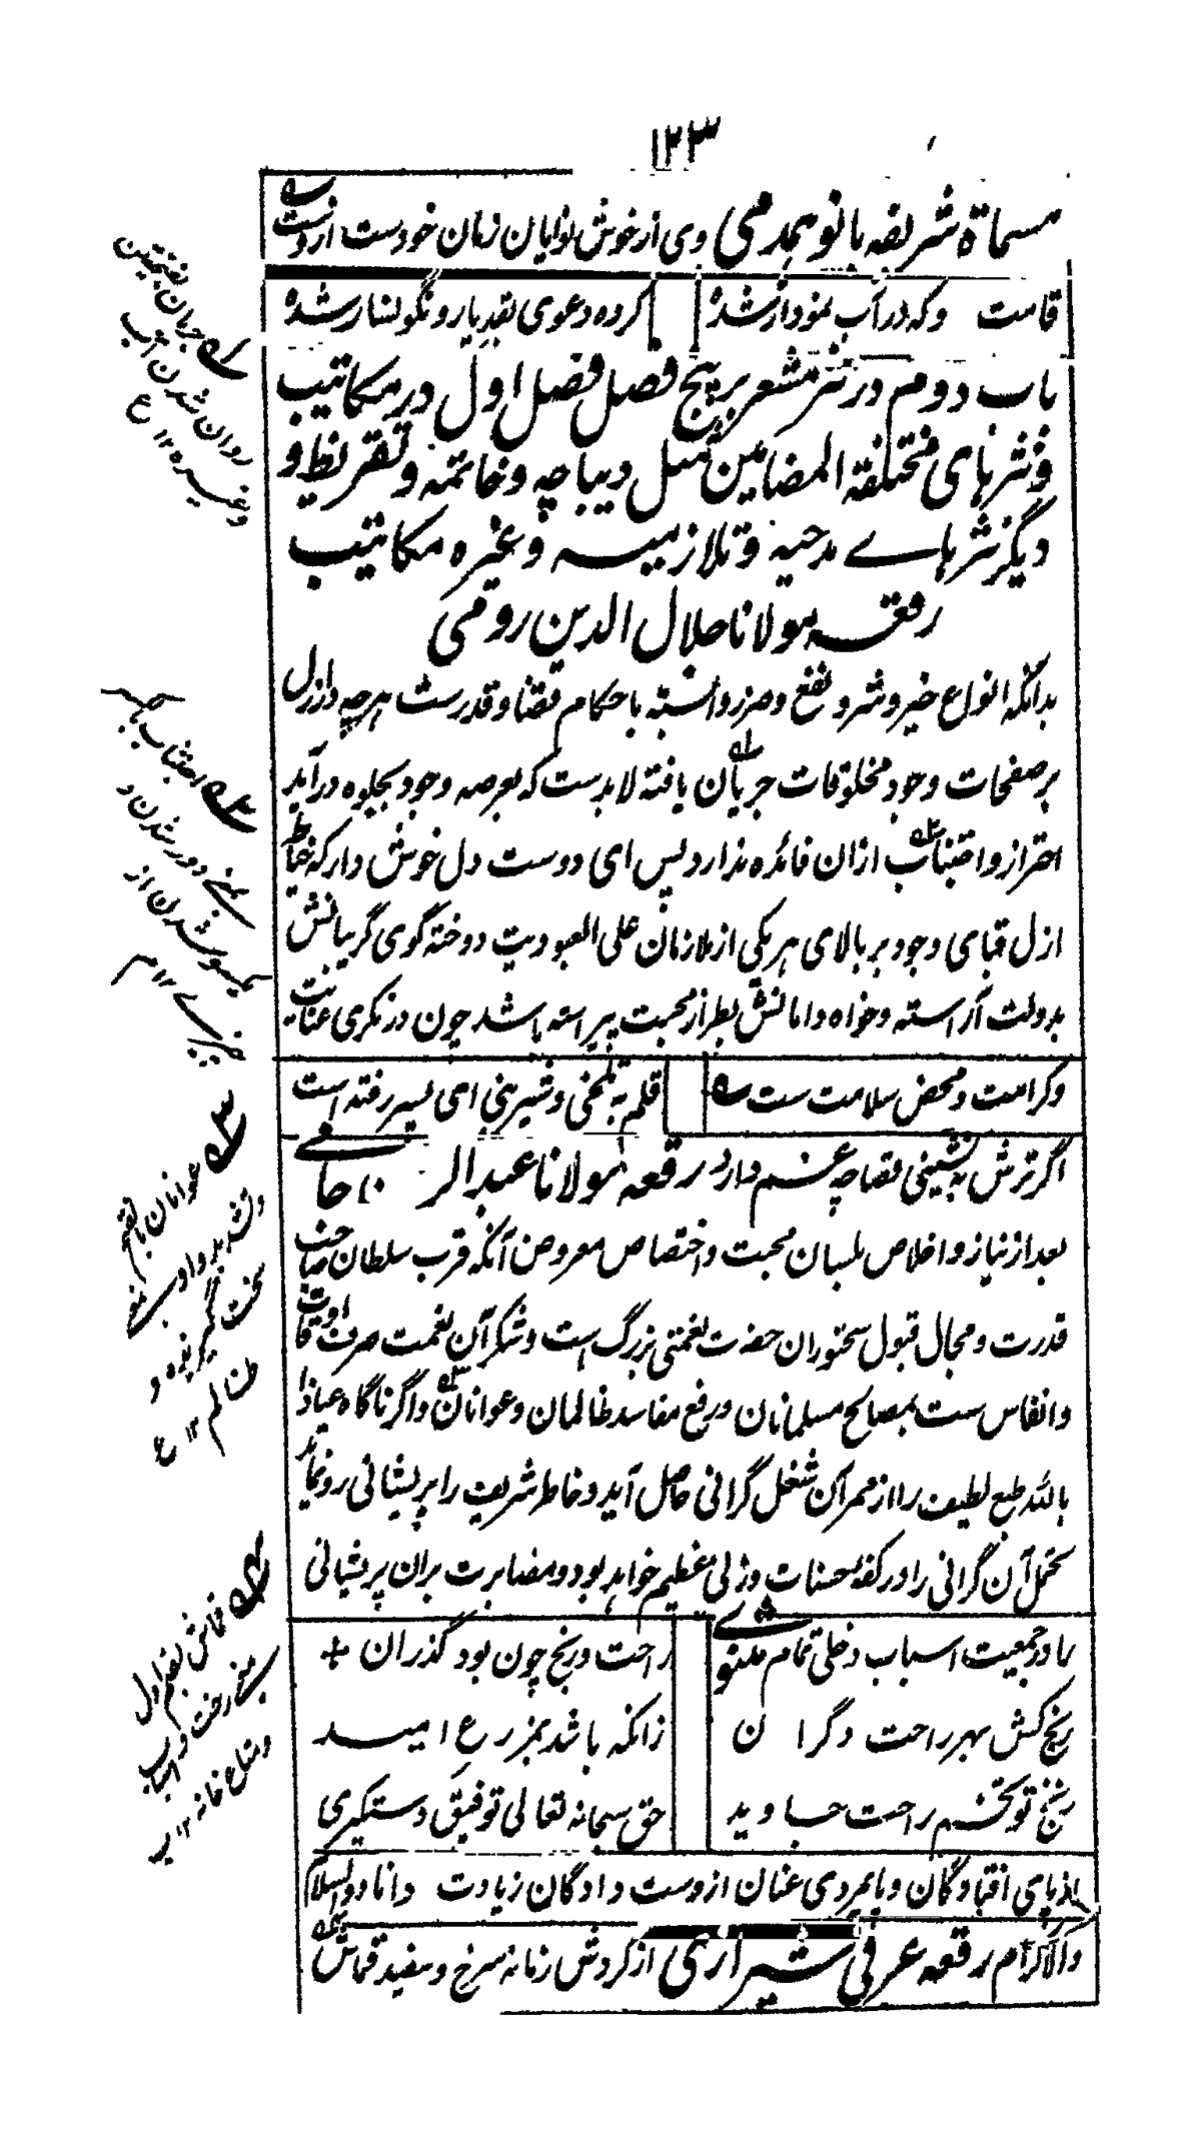 ۱۲۳
مسماة شریفه بانو همدمی وی از خوش نوایان زمان خودست ازوست
قامت وکه در آب نمودار شده کرده دعوی بقد یار و نگونسار شده
باب دوم در نثر مشعر بر پنج فصل فصل اول در مکاتیب
و نثرهای مختلفة المضامین مثل دیباچه و خاتمه و تقریظ و
دیگر نثرهاے مدحیه و تلازمیه وغیره مکاتیب
رقعه مولانا جلال الدین رومی
بدانکه انواع خیر و شر و نفع و ضرر وابسته باحکام قضا و قدرست هرچه در ازل
بر صفحات وجود مخلوقات جریان یافته لابدست که بعرصه وجود بجلوه درآید
احتراز و اجتناب ازان فائده ندارد پس ای دوست دل خوش دار که خیاط
ازل قبای وجود بر بالای هر یکی از ملازمان علی العبودیت دوخته گوی گریبانش
بدولت آراسته و خواه دامانش بطراز محبت پیراسته باشد چون در نگری عنایت
وکرامت و محض سلامت ست قلم به تلخی و شیرینی ای پسر رفته است
اگر ترش بنشینی قضا چه غم دارد رقعه مولانا عبدالر جامی
بعد از نیاز و اخلاص بلسان محبت و اختصاص معروض آنکه قرب سلطان صاحب
قدرت و مجال قبول سخنوران حضرت نعمتی بزرگ است و شکر آن نعمت صرف اوقات
و انفاس ست بمصالح مسلمانان و رفع مفاسد ظالمان و عوانان و اگر ناگاه عیاذا
بالله طبع لطیف را از ممر آن شغل گرانی حاصل آید و خاطر شریف را پریشانی رو نماید
تحمل آن گرانی را در کفه حسنات وزنی عظیم خواهد بود و مصابرت بران پریشانی
را در جمعیت اسباب دخلی تمام مثنوی راحت و رنج چون بود گذران
رنج کش بهر راحت دگران زانکه باشد بمزرع امید
رنج تو تخم راحت جاوید حق سبحانه تعالی توفیق دستگیری
از پای افتادگان و پایمردی عنان از دست دادگان زیادت داناد والسلام
والاکرام رقعه عرفی شیرازی از گردش زمانه سرخ و سفید قماش
جریان بفتحتین
روان شدن آب
وغیره ۱۲ ع
اجتناب بالکسر
بمعنے دور شدن و
یکسو شدن از
چیزے ۱۲ م
عوانان بالفتح
وتشدید واو بمعنے
سخت گیرنده و
ظالم ۱۲ ع
قماش بضم اول
بمعنے رخت و اسباب
و متاع خانه ۱۲